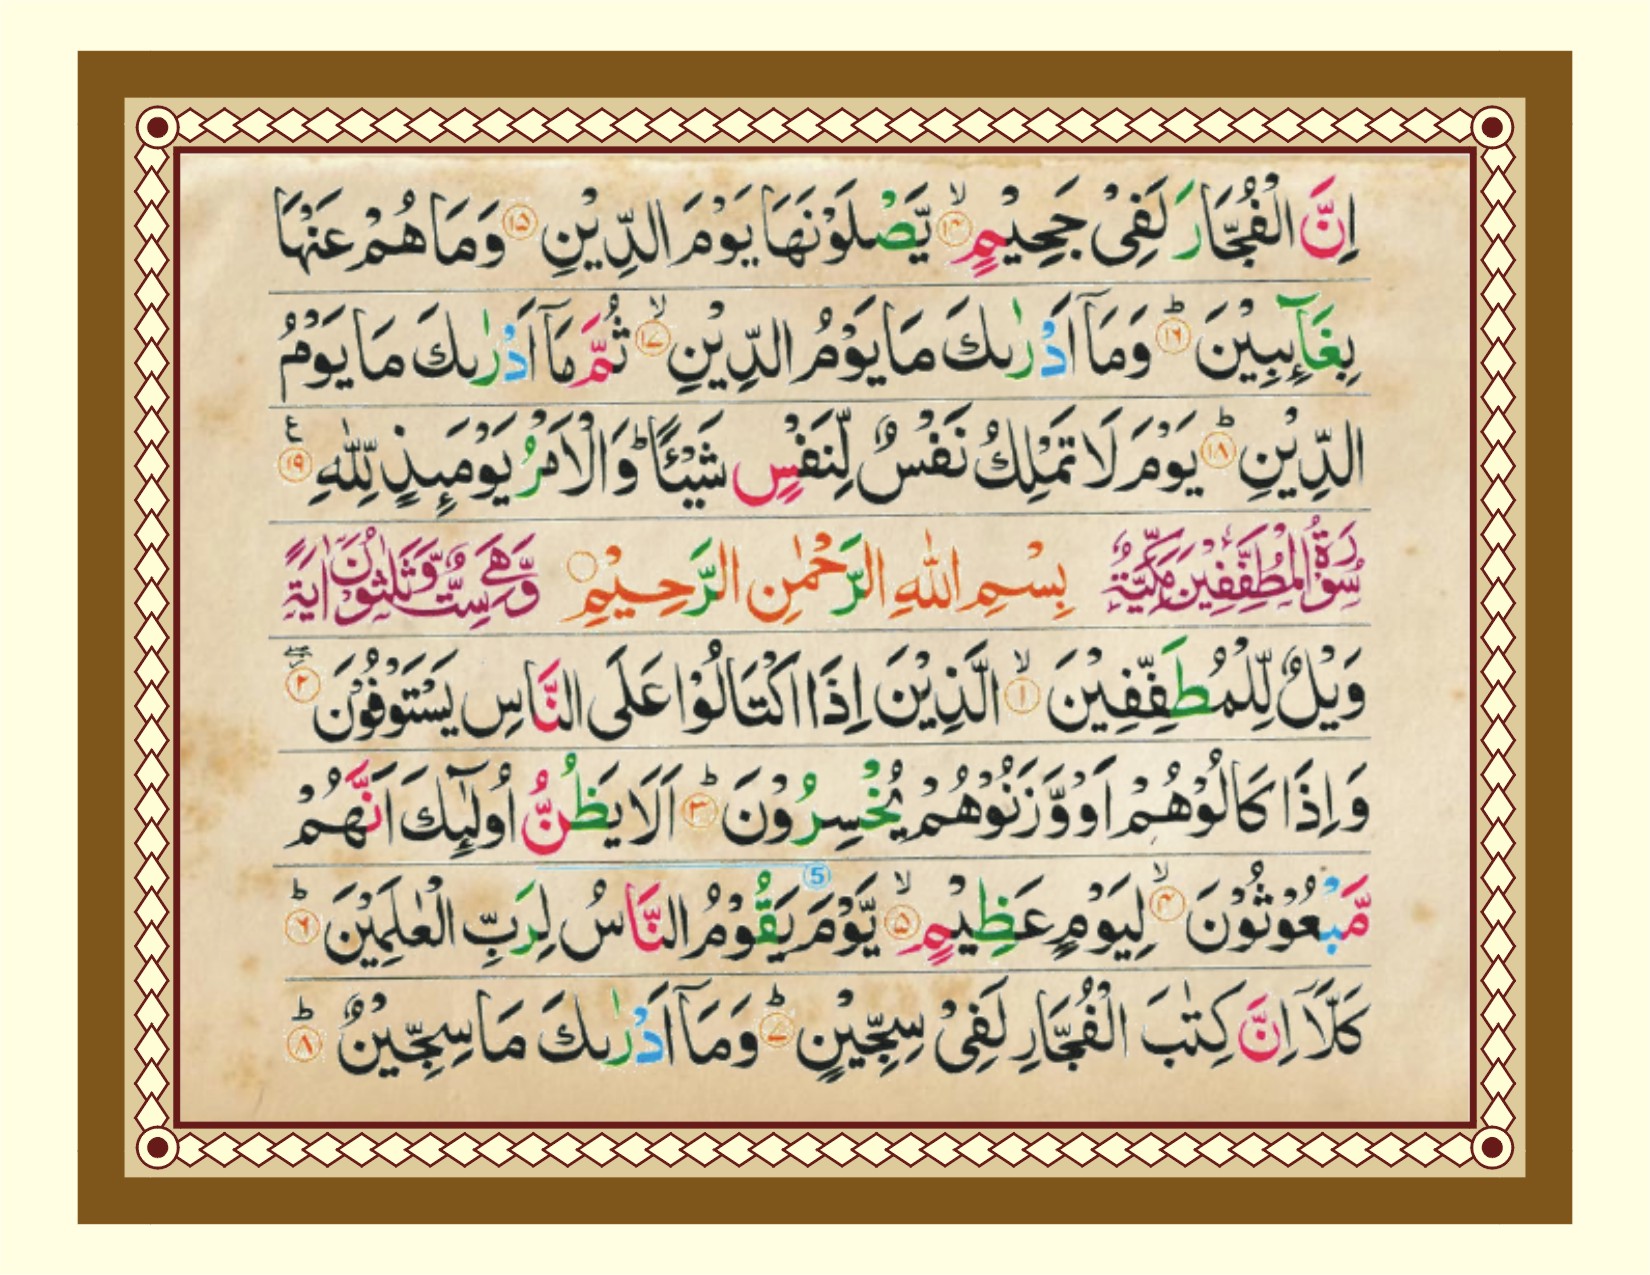 اِنَّ الْفُجَّارَ لَفِىْ جَحِيْمٍ ۙ﴿۱۴﴾ يَّصْلَوْنَهَا يَوْمَ الدِّيْنِ ﴿۱۵﴾ وَمَا هُمْ عَنْهَا
بِغَآىِٕبِيْنَ ؕ﴿۱۶﴾ وَمَآ اَدْرٰىكَ مَا يَوْمُ الدِّيْنِ ۙ﴿۱۷﴾ ثُمَّ مَآ اَدْرٰىكَ مَا يَوْمُ
الدِّيْنِ ؕ﴿۱۸﴾ يَوْمَ لَا تَمْلِكُ نَفْسٌ لِّنَفْسٍ شَيْـًٔا ؕ وَالْاَمْرُ يَوْمَىِٕذٍ لِّلّٰهِ ﴿۱۹﴾ ع
سُوْرَةُ الْمُطَفِّفِيْنَ مَكِّيَّةٌ بِسْمِ اللّٰهِ الرَّحْمٰنِ الرَّحِيْمِ وَّهِىَ سِتٌّ وَّثَلٰثُوْنَ اٰيَةً
وَيْلٌ لِّلْمُطَفِّفِيْنَ ۙ﴿۱﴾ الَّذِيْنَ اِذَا اكْتَالُوْا عَلَى النَّاسِ يَسْتَوْفُوْنَ ﴿۲﴾
وَاِذَا كَالُوْهُمْ اَوْ وَّزَنُوْهُمْ يُخْسِرُوْنَ ؕ﴿۳﴾ اَلَا يَظُنُّ اُولٰٓىِٕكَ اَنَّهُمْ
مَّبْعُوْثُوْنَ ۙ﴿۴﴾ لِيَوْمٍ عَظِيْمٍ ۙ﴿۵﴾ يَّوْمَ يَقُوْمُ النَّاسُ لِرَبِّ الْعٰلَمِيْنَ ؕ﴿۶﴾ 5
كَلَّآ اِنَّ كِتٰبَ الْفُجَّارِ لَفِىْ سِجِّيْنٍ ؕ﴿۷﴾ وَمَآ اَدْرٰىكَ مَا سِجِّيْنٌ ؕ﴿۸﴾